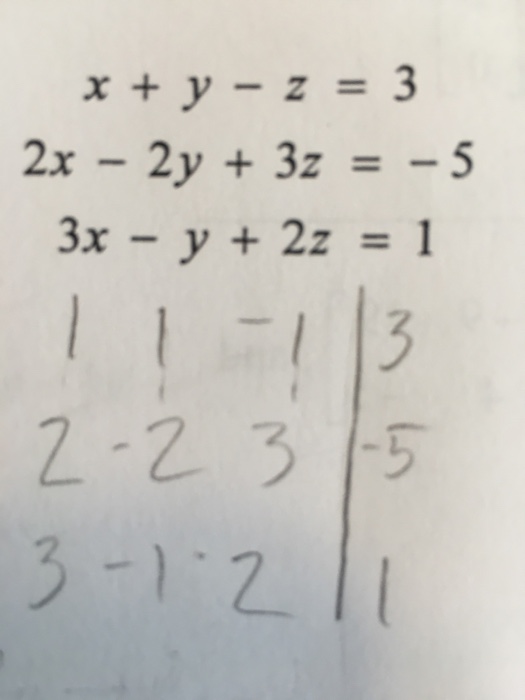 x + y - z = 3
2x - 2y + 3z = -5
3x - y + 2z = 1
1 1 -1 | 3
2 -2 3 | -5
3 -1 2 | 1